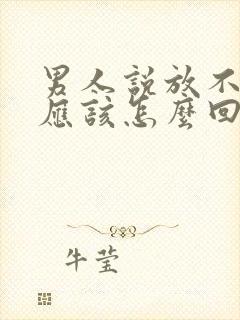 男人説放不
應該怎麼回
牛莹